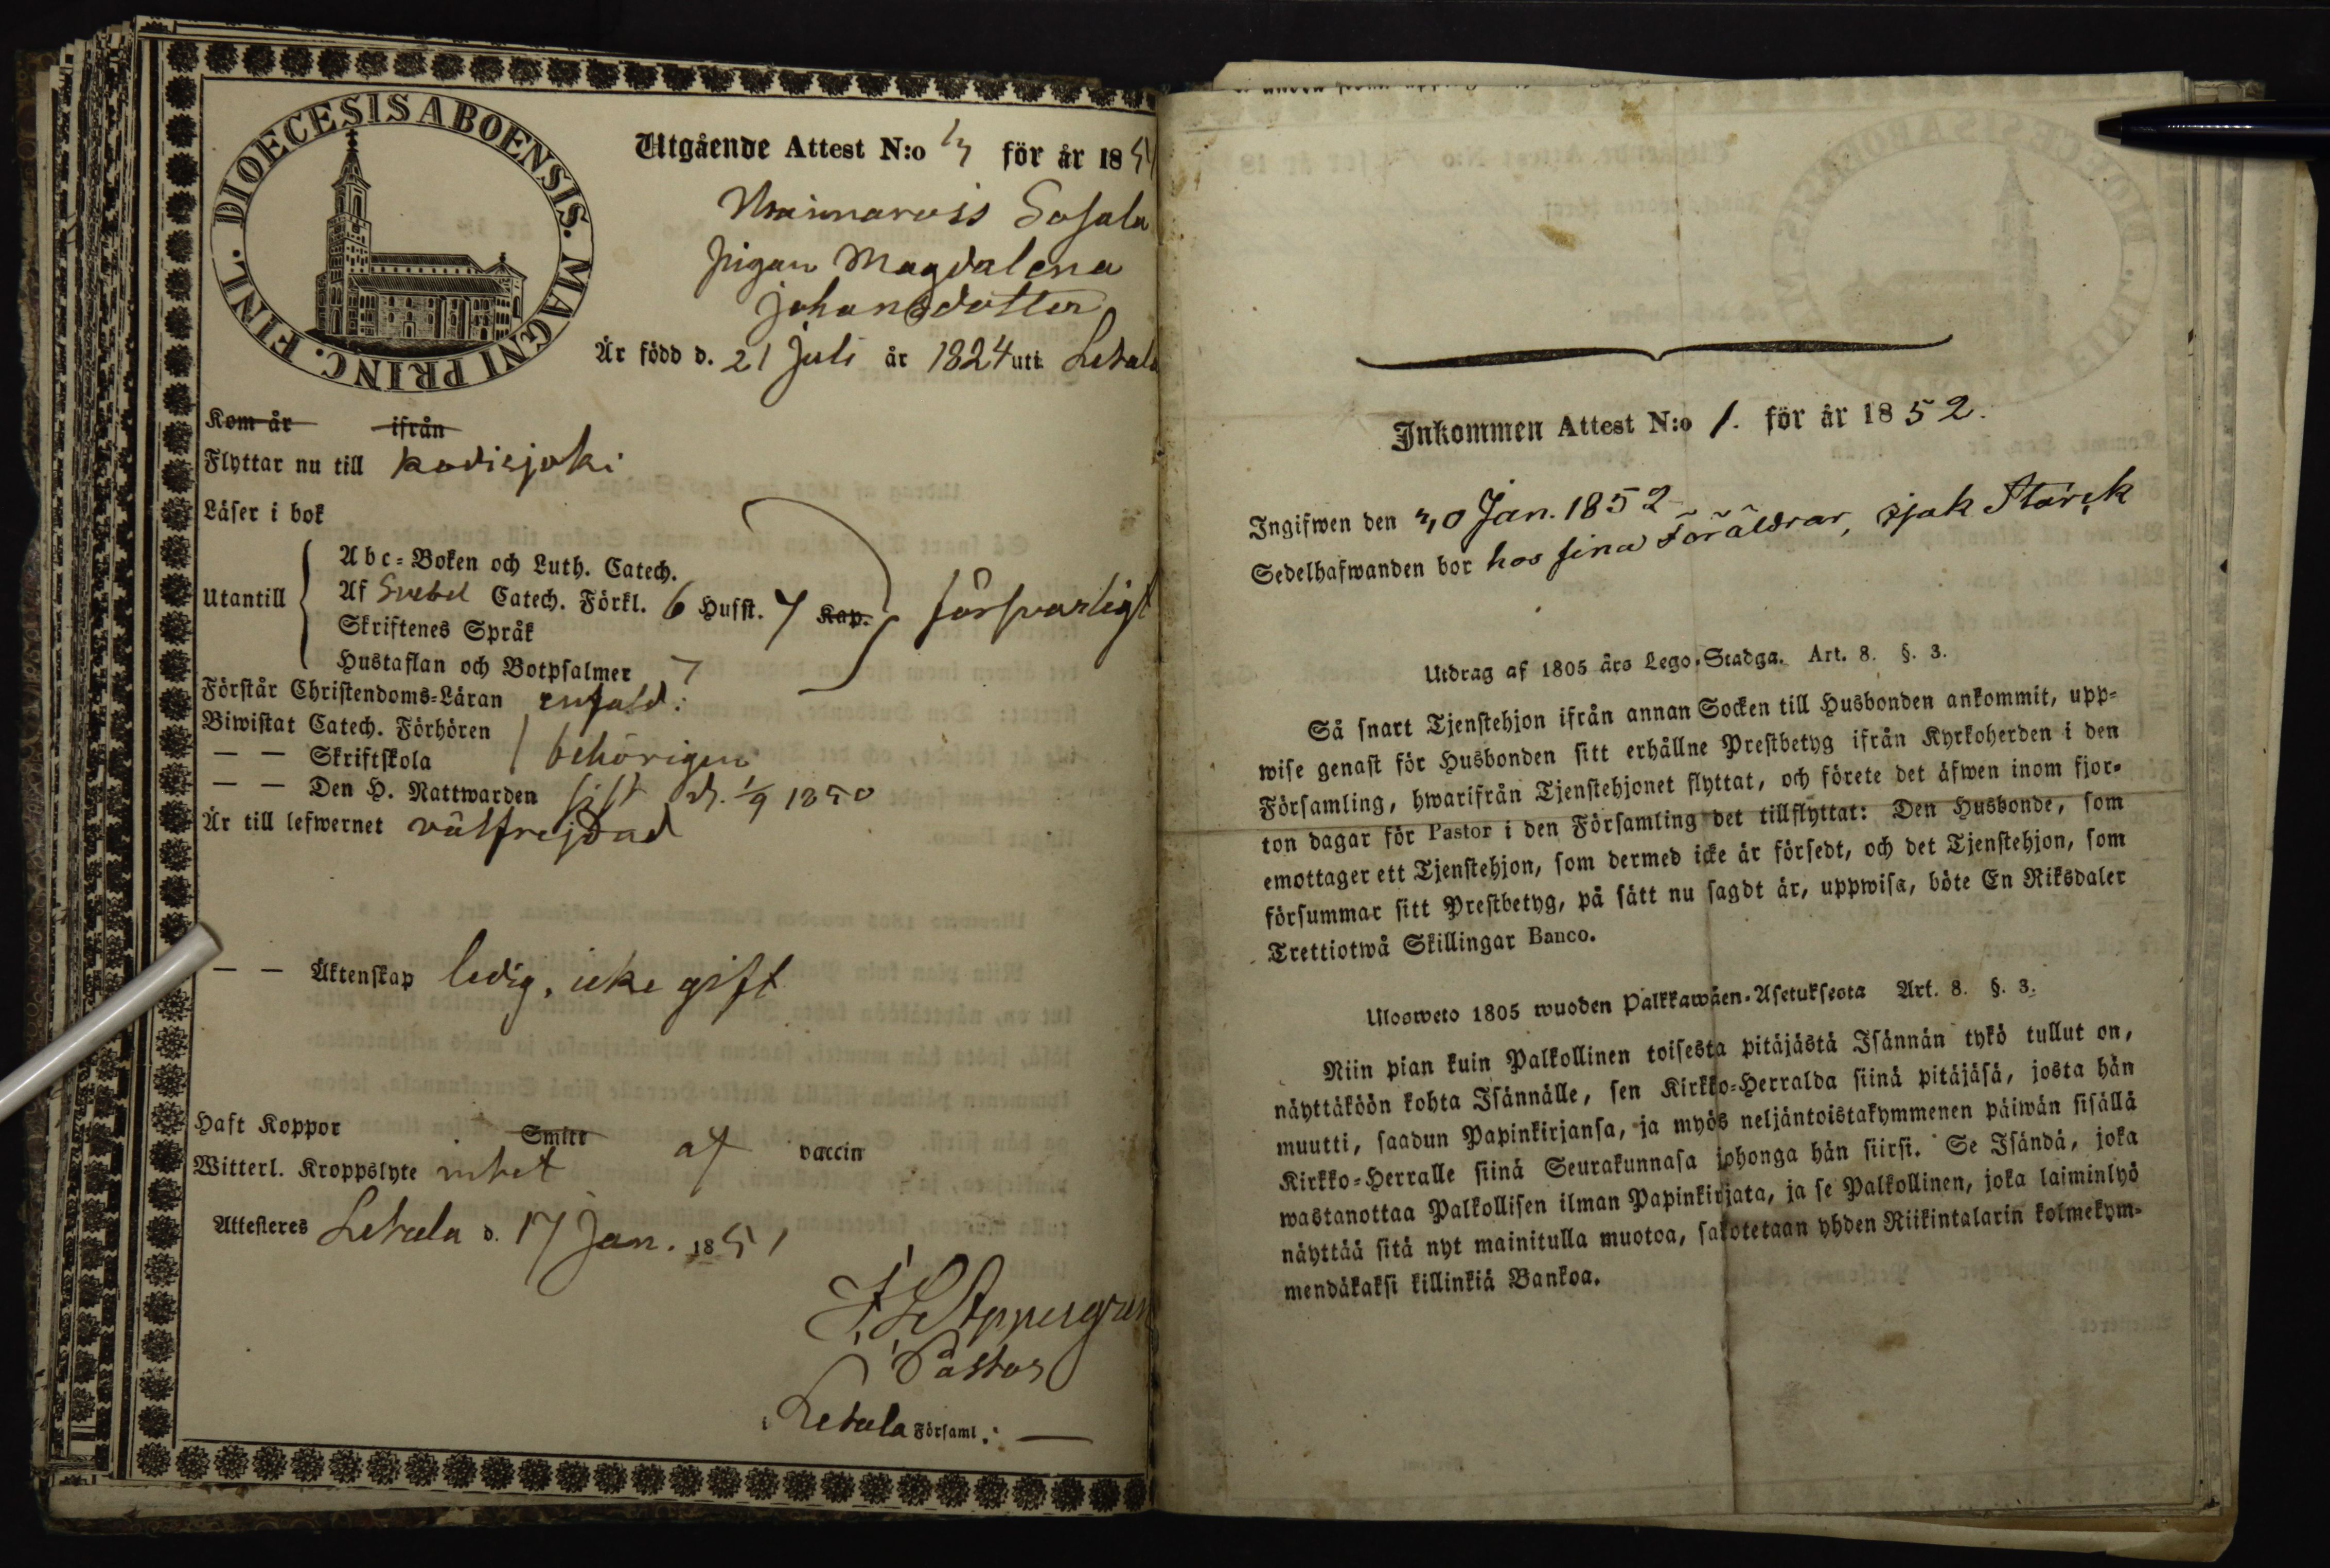 DIOECESIS ABOENSIS. MAGNI PRINC. FINL.
Utgående Attest N:o 13 för år 1851
Sofala
pigan Magdalena
Johansdotter
Är född d. 21 Juli år 1824 uti Letala
Kom år ifrån
Flyttar nu till Kodisjoki
Läser i bok
Utantill
Abc-Boken och Luth. Catech.
Af Svebel Catech. Förkl. 6 Hufst. 7 Kap. försvarligt
Skriftenes Språk
Hustaflan och Botpsalmer 7
Förstår Christendoms-Läran enfald:
Biwistat Catech. Förhören
— — Skriftskola behörigen
— — Den H. Nattwarden sist d. 1/9 1850
Är till lefwernet välfrejdad
— — Äktenskap ledig, icke gift
Haft Koppor Smitt af vaccin
Witterl. Kroppslyte intet
Attesteres Letala d. 17 Jan. 1851
Pastor
i Letala Församl.
Inkommen Attest N:o 1. för år 1852.
Ingifwen den 30 Jan. 1852
Sedelhafwanden bor hos sina Föräldrar, sjuk Stärck
Utdrag af 1805 års Lego-Stadga. Art. 8. §. 3.
Så snart Tjenstehjon ifrån annan Socken till Husbonden ankommit, upp-
wise genast för Husbonden sitt erhållne Prestbetyg ifrån Kyrkoherden i den
Församling, hwarifrån Tjenstehjonet flyttat, och förete det äfwen inom fjor-
ton dagar för Pastor i den Församling det tillflyttat: Den Husbonde, som
emottager ett Tjenstehjon, som dermed icke är försedt, och det Tjenstehjon, som
försummar sitt Prestbetyg, på sätt nu sagdt är, uppwisa, böte En Riksdaler
Trettiotwå Skillingar Banco.
Ulosweto 1805 wuoden Palkkawäen-Asetuksesta Art. 8. §. 3.
Niin pian kuin Palkollinen toisesta pitäjästä Isännän tykö tullut on,
näyttäköön kohta Isännälle, sen Kirkko-Herralda siinä pitäjäsä, josta hän
muutti, saadun Papinkirjansa, ja myös neljäntoistakymmenen päiwän sisällä
Kirkko-Herralle siinä Seurakunnasa johonga hän siirsi. Se Isändä, joka
wastanottaa Palkollisen ilman Papinkirjata, ja se Palkollinen, joka laiminlyö
näyttää sitä nyt mainitulla muotoa, sakotetaan yhden Riikintalarin kolmekym-
mendäkaksi killinkiä Bankoa.